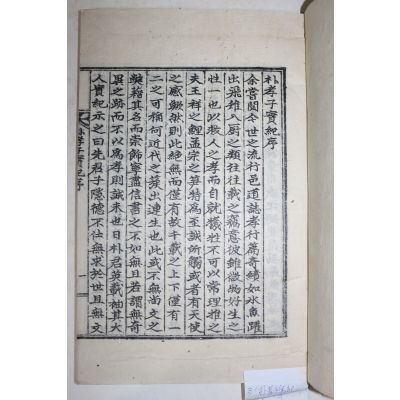 朴孝子實紀序
余嘗閱今世之流行邑道誌孝行篇奇績如水魚躍
出飛雉入厨之類往往載之竊意彼雖微物好生之
性一也以救人之孝而自就犧牲不可以常理推之
夫王祥之鯉孟宗之笋特爲至誠所觸或者有天使
之感歟然則此絶無而僅有故千載之上下僅有一
二之可稱何近代之葉出連生也此或不無尙文之
獘藉其名而崇飾寧盡信書之不如無書若謂無奇
異之跡而不以爲孝則誠未也日朴君英載袖其大
人實紀示之曰先君子隱德不仕無求於世且無文
朴孝子實紀序
一